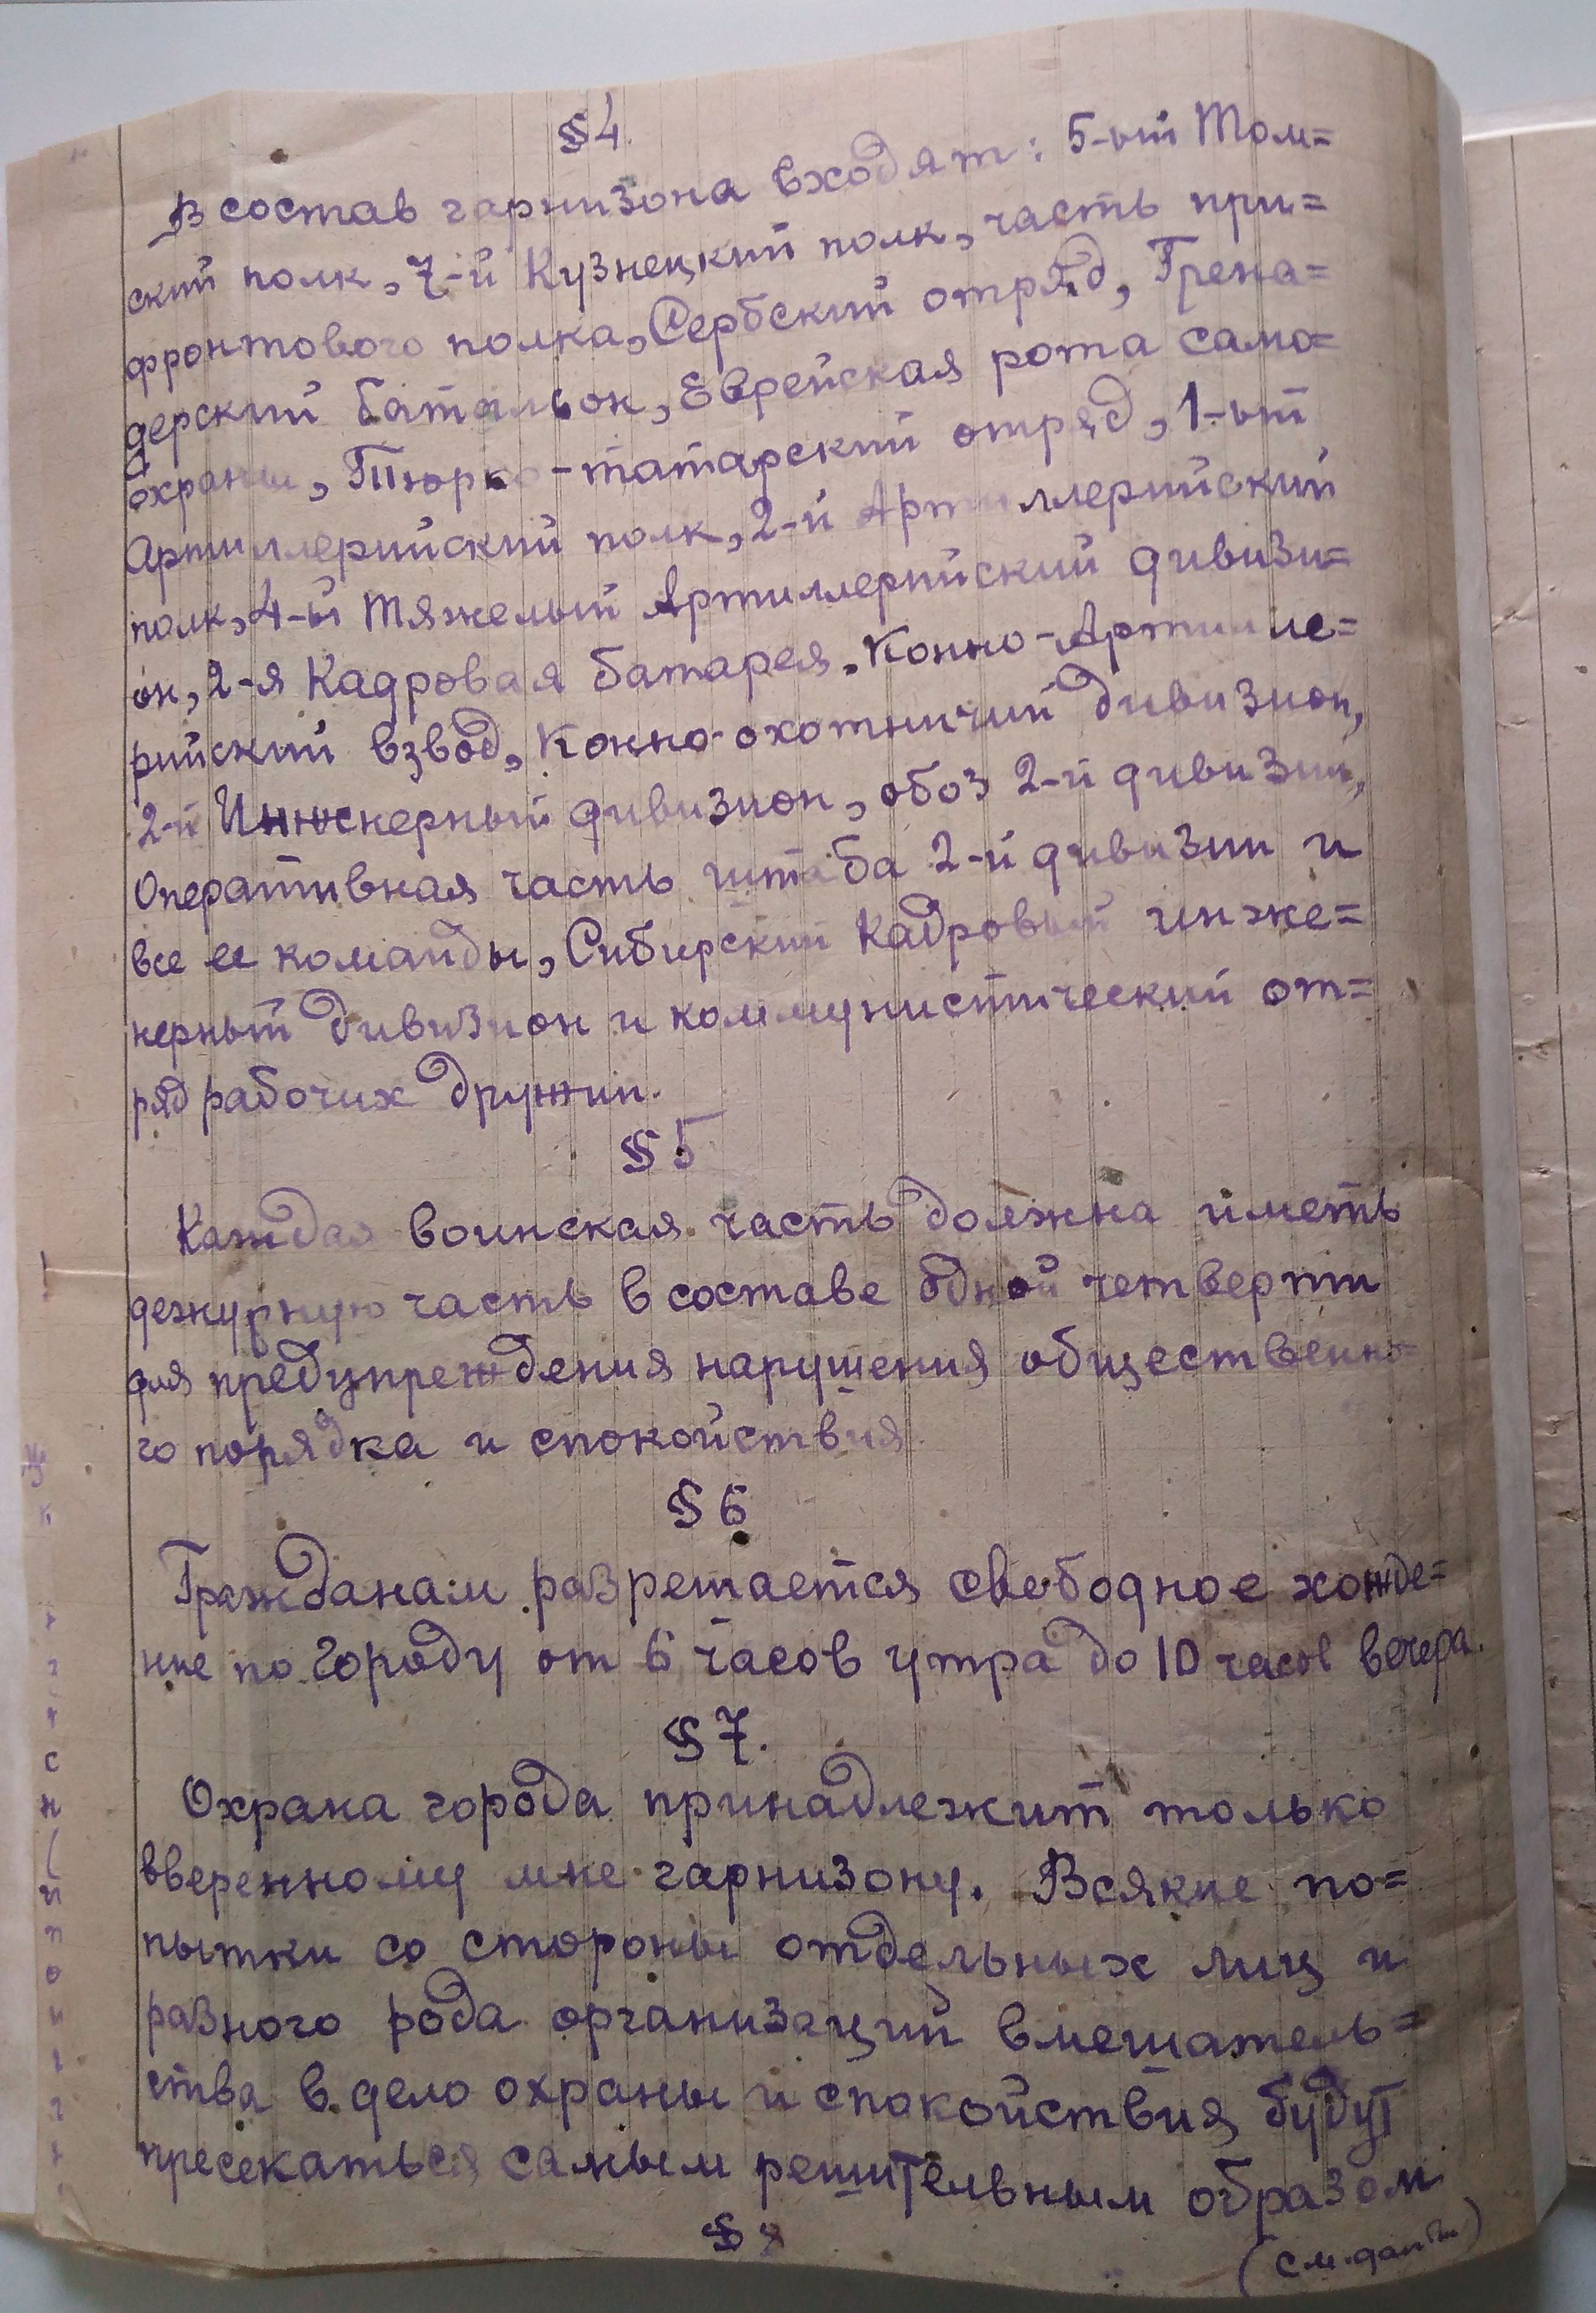 §4.
В состав гарнизона входят: 5-ый Том=
ский полк, 7-й Кузнецкий полк, часть при=
фронтового полка, Сербский отряд, Грена=
дерский батальон, Еврейская рота само=
охраны, Тюрко-татарский отряд, 1-ый
Артиллерийский полк, 2-й Артиллерийский
полк, 4-ый Тяжелый Артиллерийский дивизи=
он, 2-я Кадровая батарея, Конно-Артилле=
рийский взвод, Конно-охотничий дивизион,
2-й Инженерный дивизион, обоз 2-й дивизии,
Оперативная часть штаба 2-й дивизии и
все ее команды, Сибирский Кадровый инже=
нерный дивизион и коммунистический от=
ряд рабочих дружин.
§5
Каждая воинская часть должна иметь
дежурную часть в составе одной четверти
для предупреждения нарушения общественно=
го порядка и спокойствия.
§6
Гражданам разрешается свободное хожде=
ние по городу от 6 часов утра до 10 часов вечера.
§7.
Охрана города принадлежит только
вверенному мне гарнизону. Всякие по=
пытки со стороны отдельных лиц и
разного рода организаций вмешатель=
ства в дело охраны и спокойствия будут
пресекаться самым решительным образом
§8
(см. дальше)